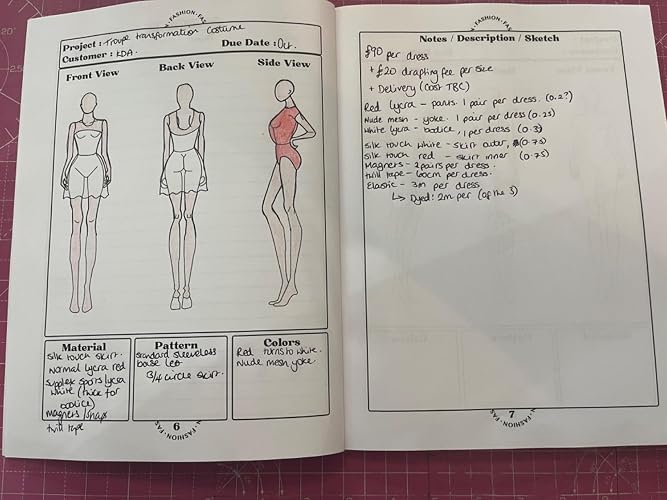 FASHION · FAS
Project : Troupe transformation Costume
Customer : KDA.
Due Date : Oct.
Front View
Back View
Side View
Material
Silk touch skirt.
Normal lycra red
Supplex sports lycra
white (thick for
bodice)
magnets / snaps
twill tape
Pattern
Standard sleeveless
base leo
3/4 circle skirt.
Colors
Red turns to white.
Nude mesh yoke.
6
N · FASHION · FAS
FASHION · FAS
Notes / Description / Sketch
£90 per dress
+ £20 drafting fee per size
+ Delivery (cost TBC)
Red lycra - pants. 1 pair per dress. (0.2?)
Nude mesh - yoke. 1 per dress (0.25)
White lycra - bodice, 1 per dress (0.3)
Silk touch white - skirt outer, (0.75)
Silk touch red - skirt inner (0.75)
Magnets - 2 pairs per dress.
twill tape - 60cm per dress.
Elastic - 3m per dress
↳ Dyed: 2m per (of the 3)
7
N · FASHION · FAS